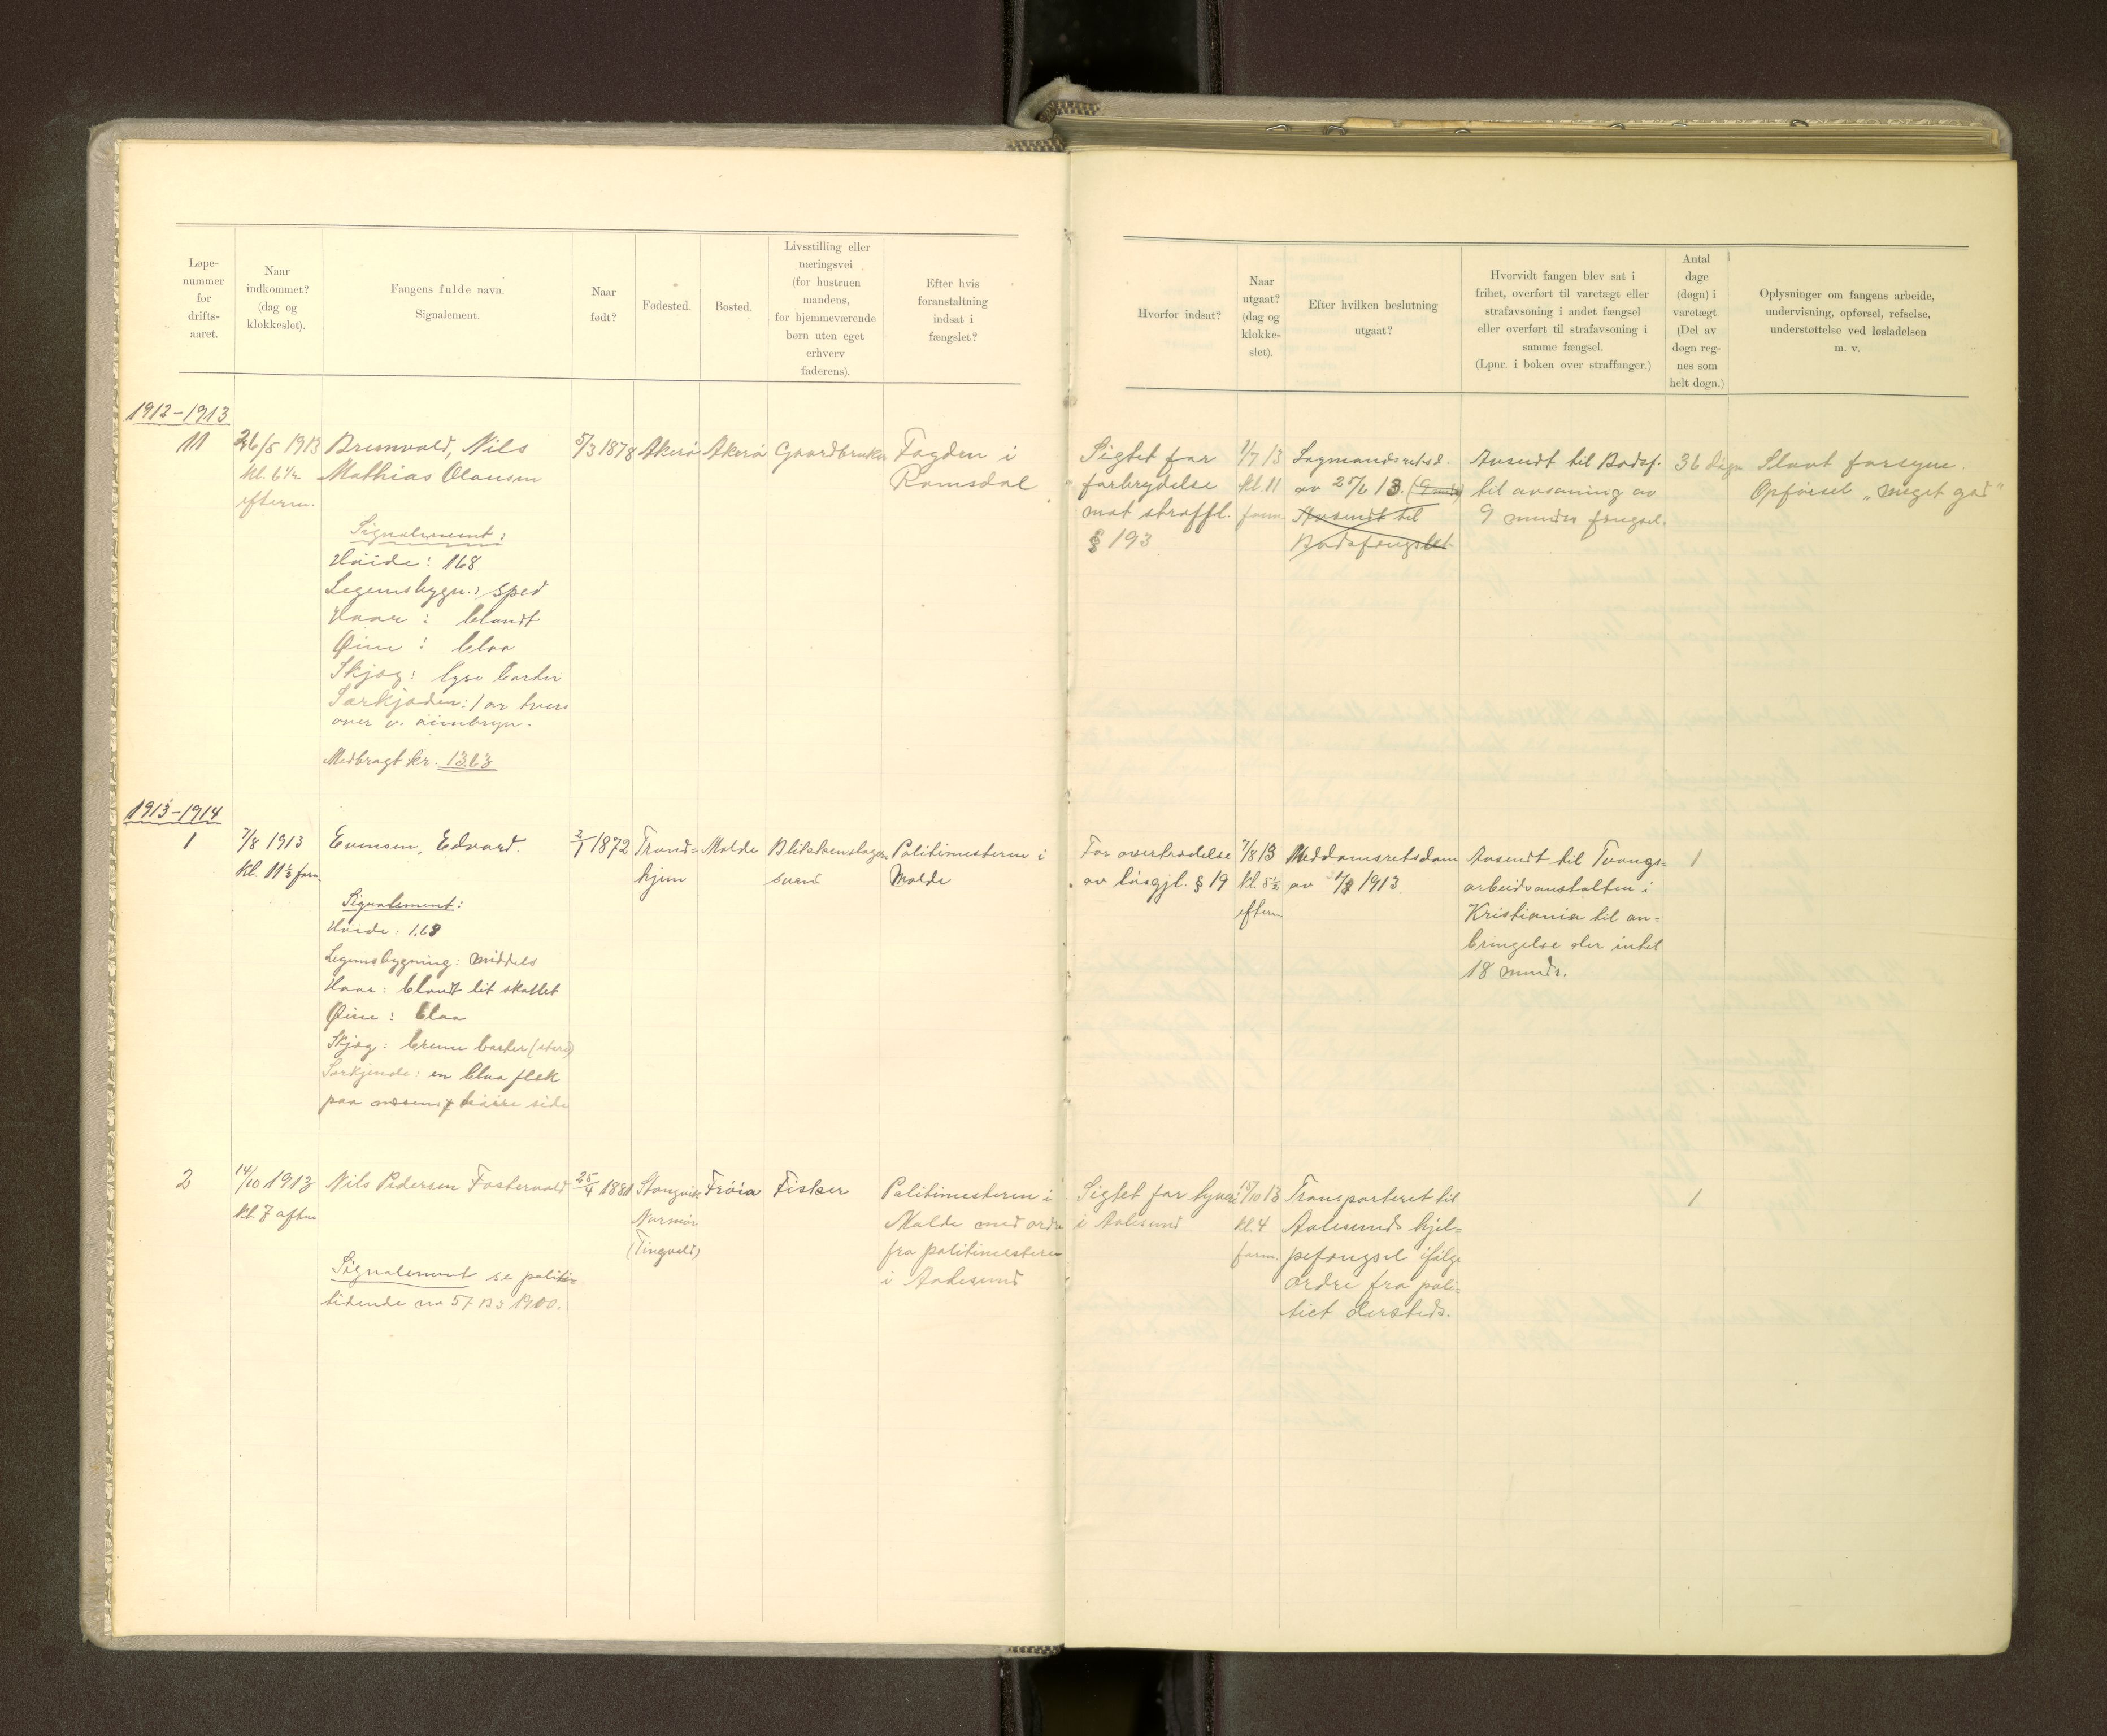 Løpe-
nummer
for
drifts-
aaret.
Naar
indkommet?
(dag og
klokkeslet).
Fangens fulde navn.
Signalement.
Naar
født?
Fødested.
Bosted.
Livsstilling eller
næringsvei
(for hustruen
mandens,
for hjemmeværende
børn uten eget
erhverv
faderens).
Efter hvis
foranstaltning
indsat i
fængslet?
Hvorfor indsat?
Naar
utgaat?
(dag og
klokke-
slet).
Efter hvilken beslutning
utgaat?
Hvorvidt fangen blev sat i
frihet, overført til varetægt eller
strafavsoning i andet fængsel
eller overført til strafavsoning i
samme fængsel.
(Lpnr. i boken over straffanger.)
Antal
dage
(døgn) i
varetægt.
(Del av
døgn reg-
nes som
helt døgn.)
Oplysninger om fangens arbeide,
undervisning, opførsel, refselse,
understøttelse ved løsladelsen
m. v.
1912-1913
11
26/5 1913
kl. 6 1/2
efterm.
Brunvold, Nils
Mathias Olausen
Signalement:
Høide: 168
Legemsbygn.: sped
Haar: blondt
Øine: blaa
Skjæg: lyse barter
Særkjenden: 1 ar tvers
over v. øienbryn.
Medbragt kr. 13.63
5/3 1878
Akerø
Akerø
Gaardbruker
Fogden i
Romsdal
Sigtet for
forbrydelse
mot straffl.
§ 193
1/7 13
kl. 11
form.
Lagmandsretsd.
av 25/6 13. (9 mndr)
Avsendt til
Bodsfængslet
Avsendt til Bodsf.
til avsoning av
9 mndrs fængsel.
36 døgn
Slavt forsyn.
Opførsel „meget god"
1913-1914
1
7/8 1913
kl. 11 1/2 form.
Evensen, Edvard.
Signalement:
Høide: 1.68
Legemsbygning: middels
Haar: blondt lit skallet
Øine: blaa
Skjæg: brune barter (store)
Særkjende: en blaa flek
paa nesens høire side
2/1 1872
Trond-
hjem
Molde
Blikkenslager
svend
Politimesteren i
Molde
For overtrædelse
av løsgjl. § 19
7/8 13
kl. 5 1/2
efterm
Meddomsretsdom
av 1/8 1913.
Avsendt til Tvangs-
arbeidsanstalten i
Kristiania til an-
bringelse der intil
18 mndr.
1
2
14/10 1913
kl. 7 aften
Nils Pedersen Fostervold
Signalement se politi-
tidende no 57
25/4 1881
Stangvik
Normør
(Tingvold)
Frøia
Fisker
Politimesteren i
Molde med ordre
fra politimesteren
i Aalesund
Sigtet for tyveri
i Aalesund
15/10 13
kl. 4
form.
Transporteret til
Aalesunds hjel-
pefængsel ifølge
ordre fra poli-
tiet dersteds.
1